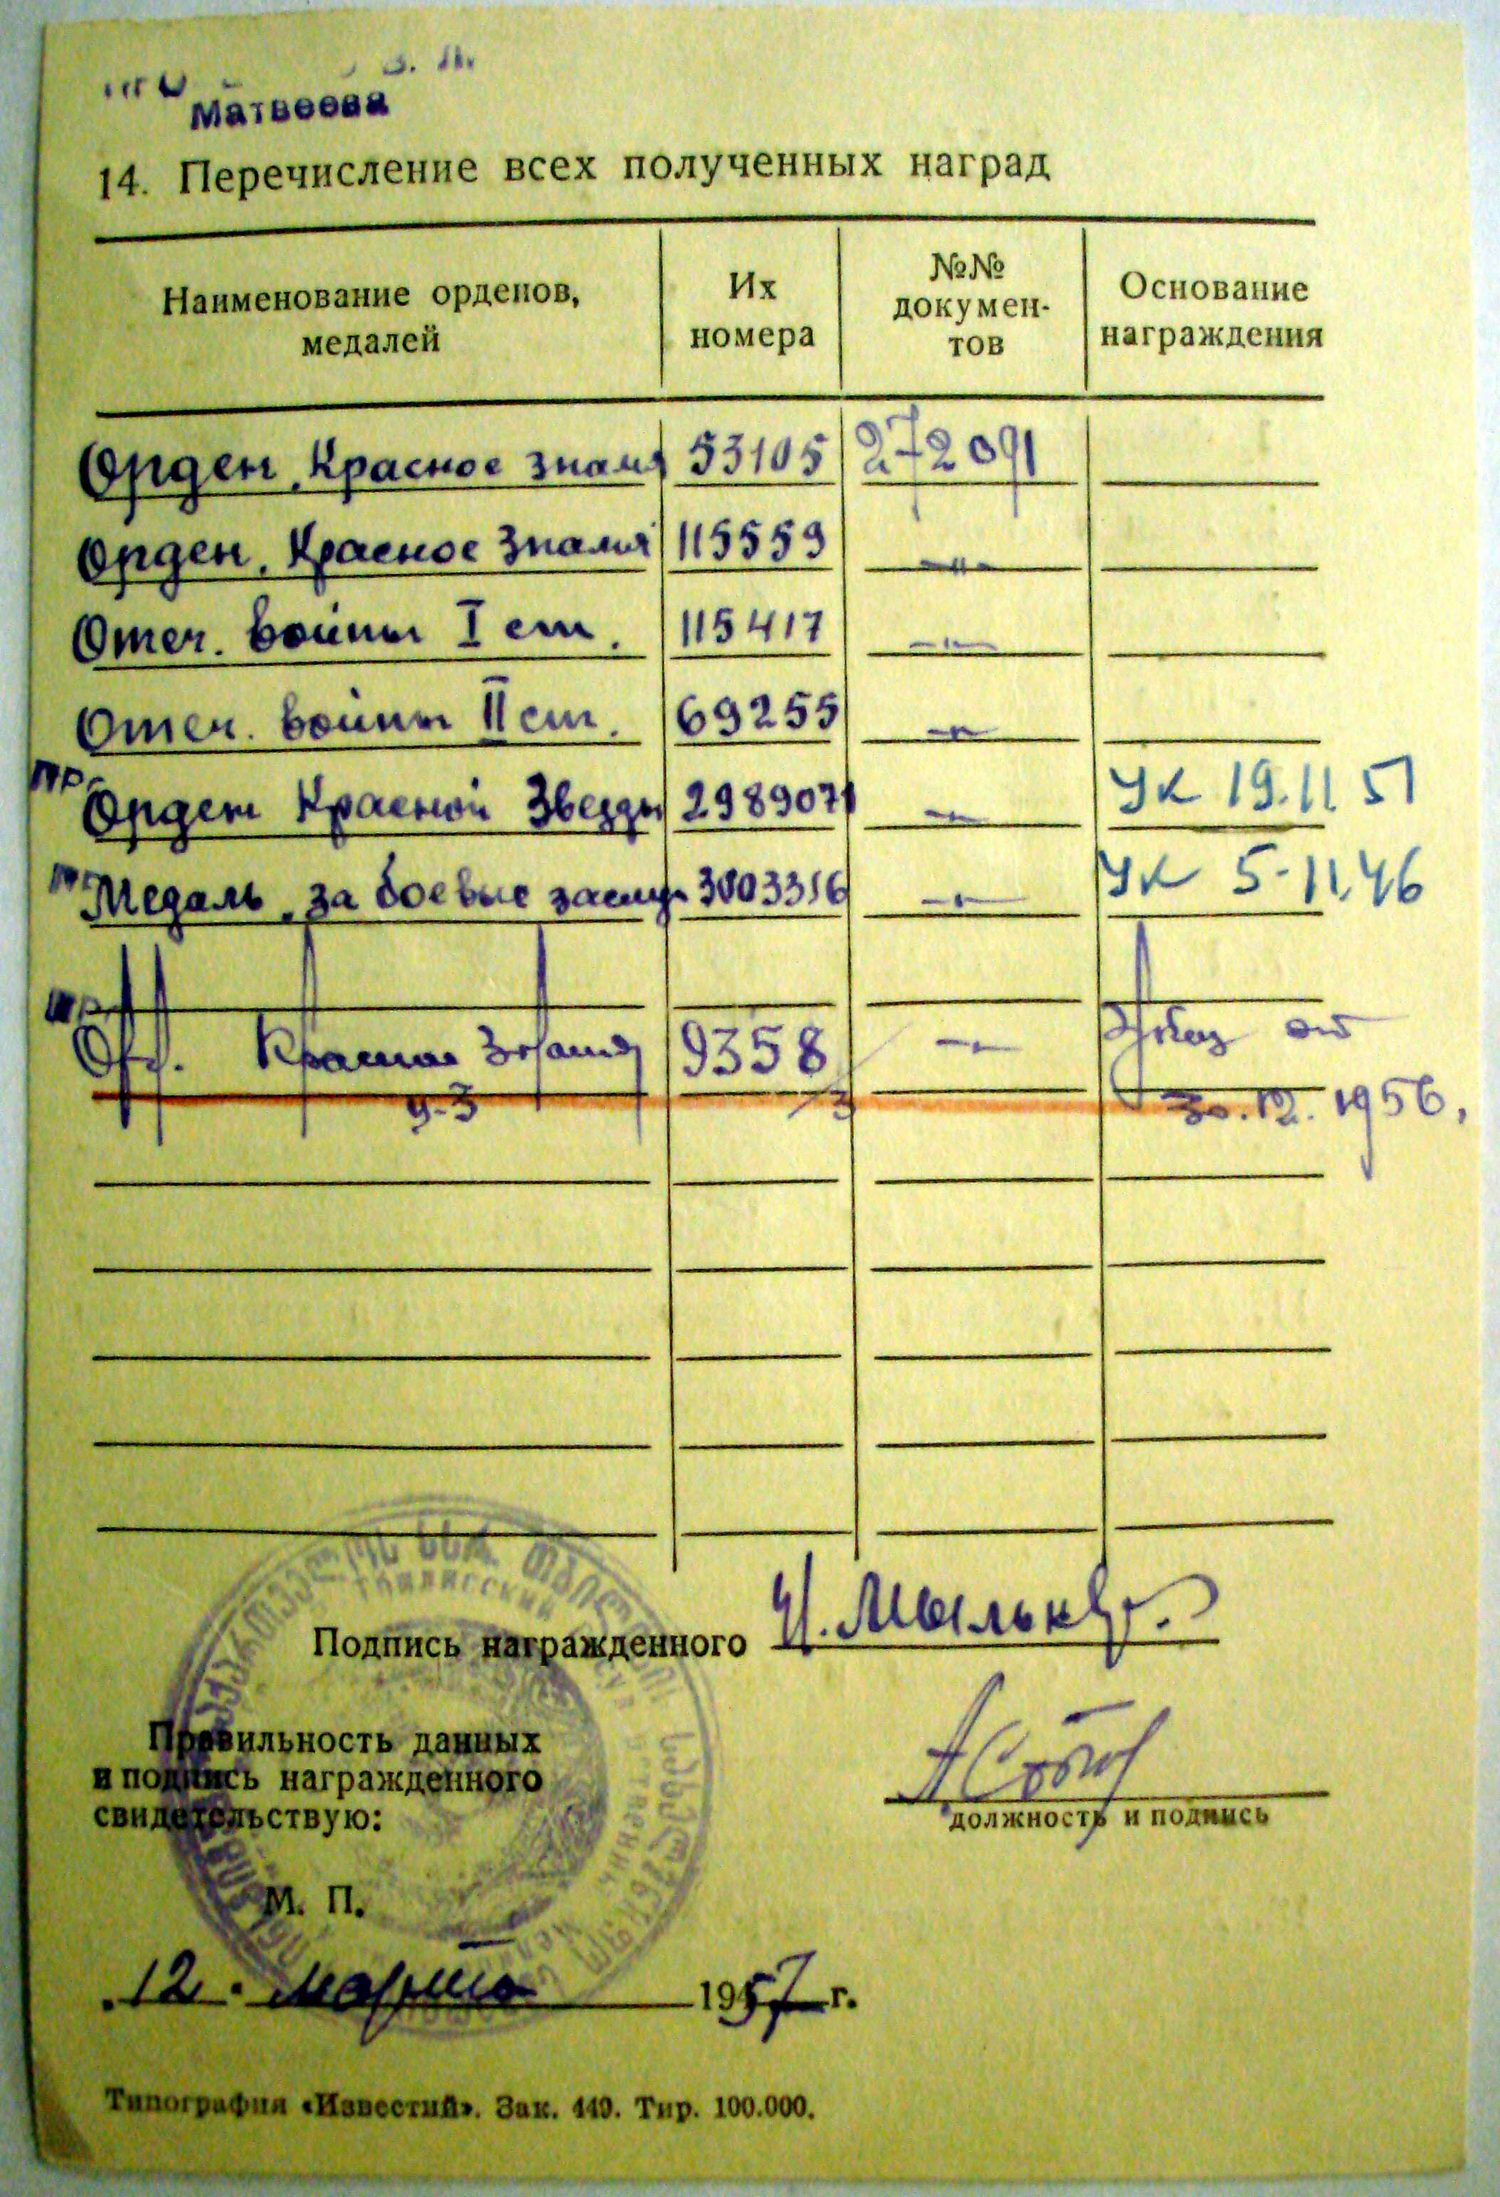 Матвеева
14. Перечисление всех полученных наград
Наименование орденов, медалей
Их номера
№№ докумен-тов
Основание награждения
Орден Красное знамя 53105 272091
Орден Красное Знамя 115559 —"—
Отеч. войны I ст. 115417 —"—
Отеч. войны II ст. 69255 —"—
пр. Орден Красной Звезды 2989071 —"— УК 19.11 51
пр. Медаль за боевые заслуг 3003316 —"— УК 5-11.46
пр.
Орд. Красное Знамя 9358 —"— Указ от
/3 30.12.1956.
Подпись награжденного И. Мыльников
Правильность данных
и подпись награжденного
свидетельствую:
должность и подпись
М. П.
12. марта 1957 г.
Типография «Известий». Зак. 449. Тир. 100.000.